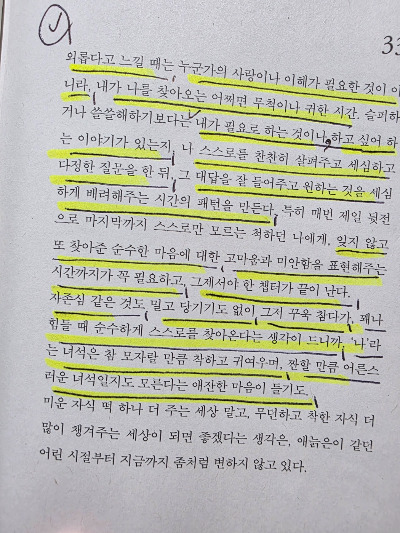 33
외롭다고 느낄 때는 누군가의 사랑이나 이해가 필요한 것이 아
니라, 내가 나를 찾아오는 어쩌면 무척이나 귀한 시간. 슬퍼하
거나 쓸쓸해하기보다는 내가 필요로 하는 것이나 하고 싶어 하
는 이야기가 있는지, 나 스스로를 찬찬히 살펴주고 세심하고
다정한 질문을 한 뒤, 그 대답을 잘 들어주고 원하는 것을 세심
하게 베려해주는 시간의 패턴을 만든다. 특히 매번 제일 뒷전
으로 마지막까지 스스로만 모르는 척하던 나에게, 잊지 않고
또 찾아준 순수한 마음에 대한 고마움과 미안함을 표현해주는
시간까지가 꼭 필요하고, 그제서야 한 챕터가 끝이 난다.
자존심 같은 것도 밀고 당기기도 없이 그저 꾸욱 참다가, 꽤나
힘들 때 순수하게 스스로를 찾아온다는 생각이 드니까, '나'라
는 녀석은 참 모자랄 만큼 착하고 귀여우며, 짠할 만큼 어른스
러운 녀석일지도 모른다는 애잔한 마음이 들기도.
미운 자식 떡 하나 더 주는 세상 말고, 무던하고 착한 자식 더
많이 챙겨주는 세상이 되면 좋겠다는 생각은, 애늙은이 같던
어린 시절부터 지금까지 좀처럼 변하지 않고 있다.